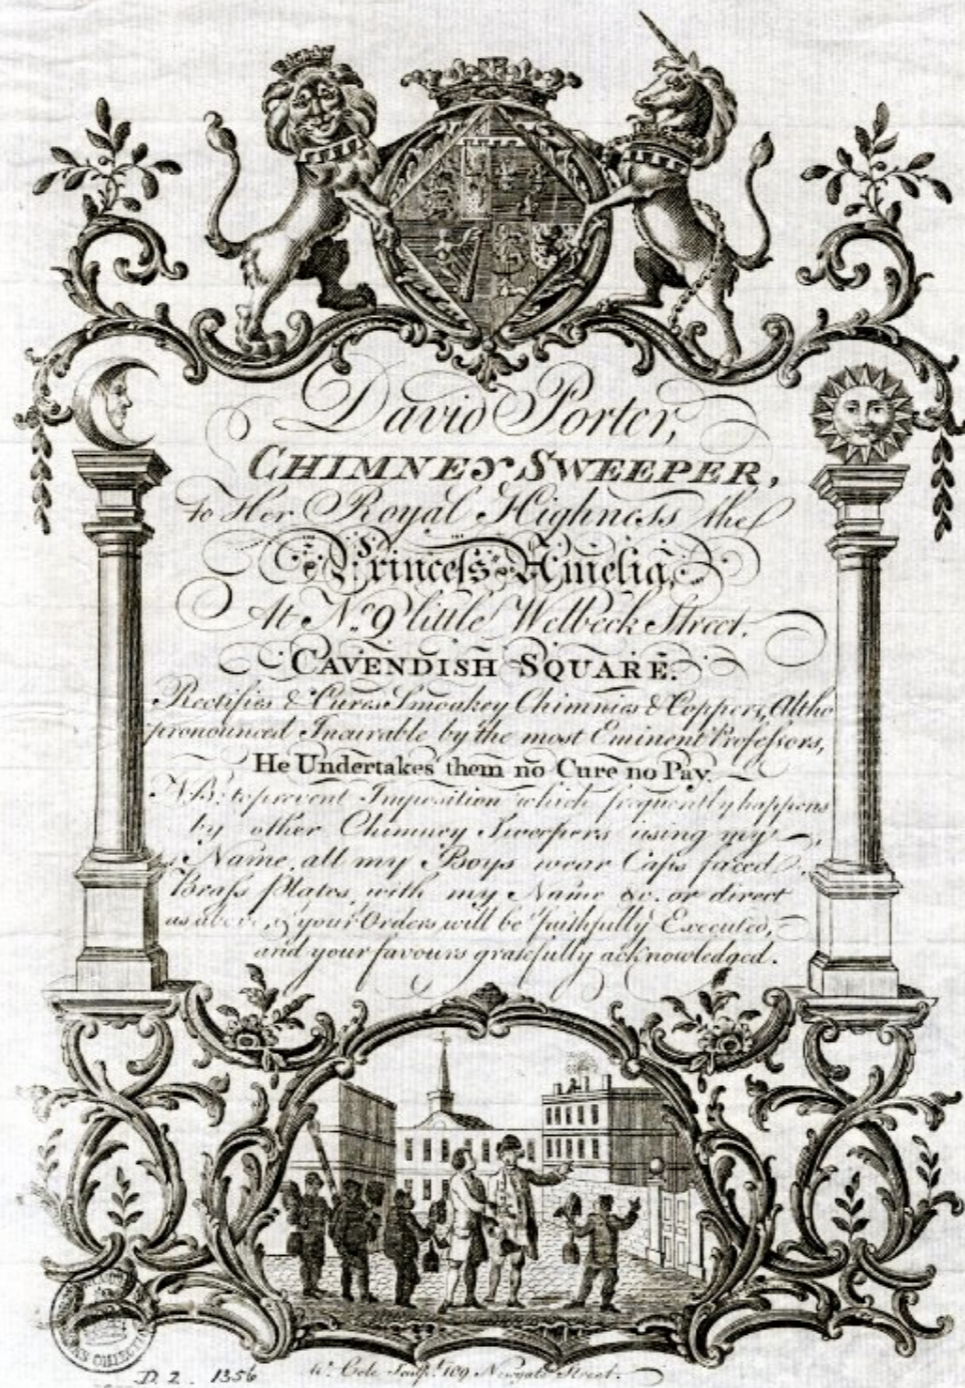 David Porter,
CHIMNEY SWEEPER,
to Her Royal Highness the
Princess Amelia,
At No. 9 little Welbeck Street.
CAVENDISH SQUARE.
Rectifies & Cures Smoakey Chimnies & Coppers, Altho
pronounced Incurable by the most Eminent Professors,
He Undertakes them no Cure no Pay.
NB. to prevent Imposition which frequently happens
by other Chimney Sweepers using my
Name, all my Boys wear Caps faced
Brass Plates, with my Name &c. or direct
as above, & your Orders will be faithfully Executed,
and your favours gratefully acknowledged.
D.2. 1356
Wm. Cole Sculpt. 109 Newgate Street.